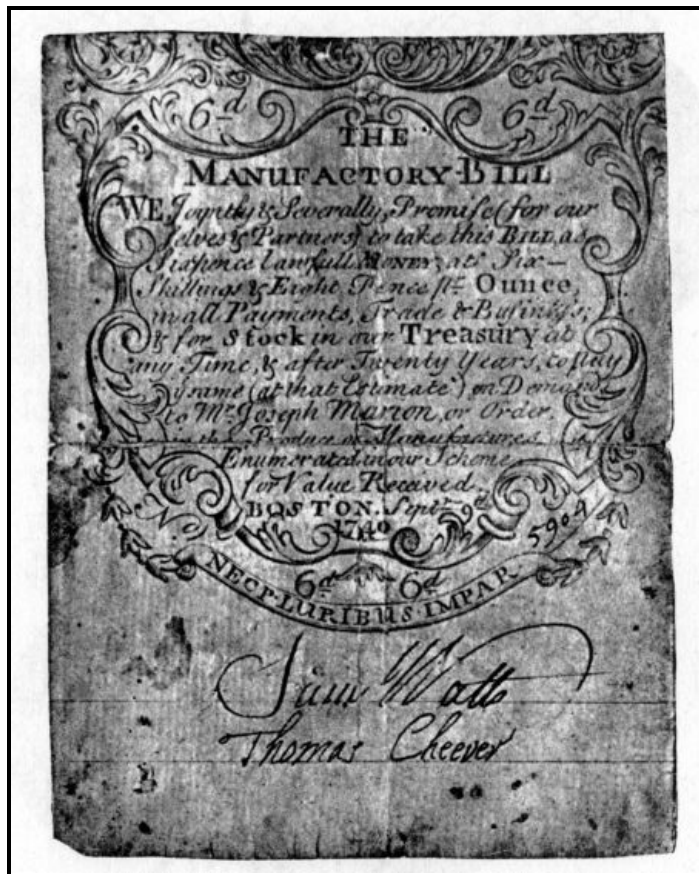 6d 6d
THE
MANUFACTORY BILL
WE Joyntly & Severally, Promise (for our
selves & Partners) to take this BILL as
Sixpence lawfull MONEY, at Six-
Shillings & Eight Pence pr. Ounce,
in all Payments, Trade & Business;
& for Stock in our Treasury at
any Time, & after Twenty Years, to pay
ye same (at that Estimate) on Demand
to Mr. Joseph Marion, or Order,
in the Produce or Manufactures
Enumerated in our Scheme,
for Value Received.
BOSTON. Septr. 9d
1740
No 590A
6d 6d
NEC PLURIBUS IMPAR
Sam Watts
Thomas Cheever
B